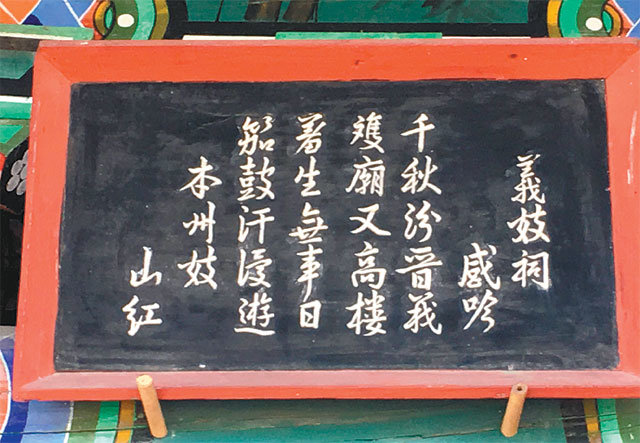 義妓祠
感吟
千秋汾晋義
雙廟又高樓
羞生無事日
笳鼓汗漫遊
本州妓
山紅